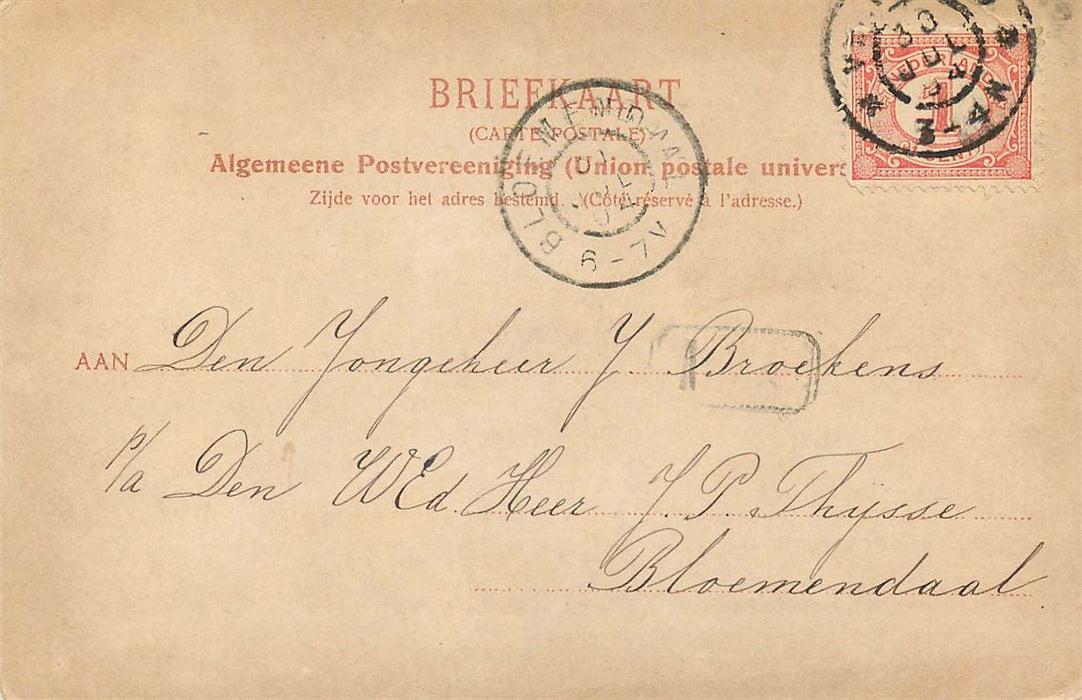 BRIEFKAART
(CARTE POSTALE)
Algemeene Postvereeniging (Union postale univers
Zijde voor het adres bestemd. (Côté réservé à l'adresse.)
NEDERLAND
1
CENT
3-4 N
BLOEMENDAAL
JUL
04
6-7V
1
AAN Den Jongeheer J Broekens
p/a Den WEd Heer J. P. Thijsse
Bloemendaal